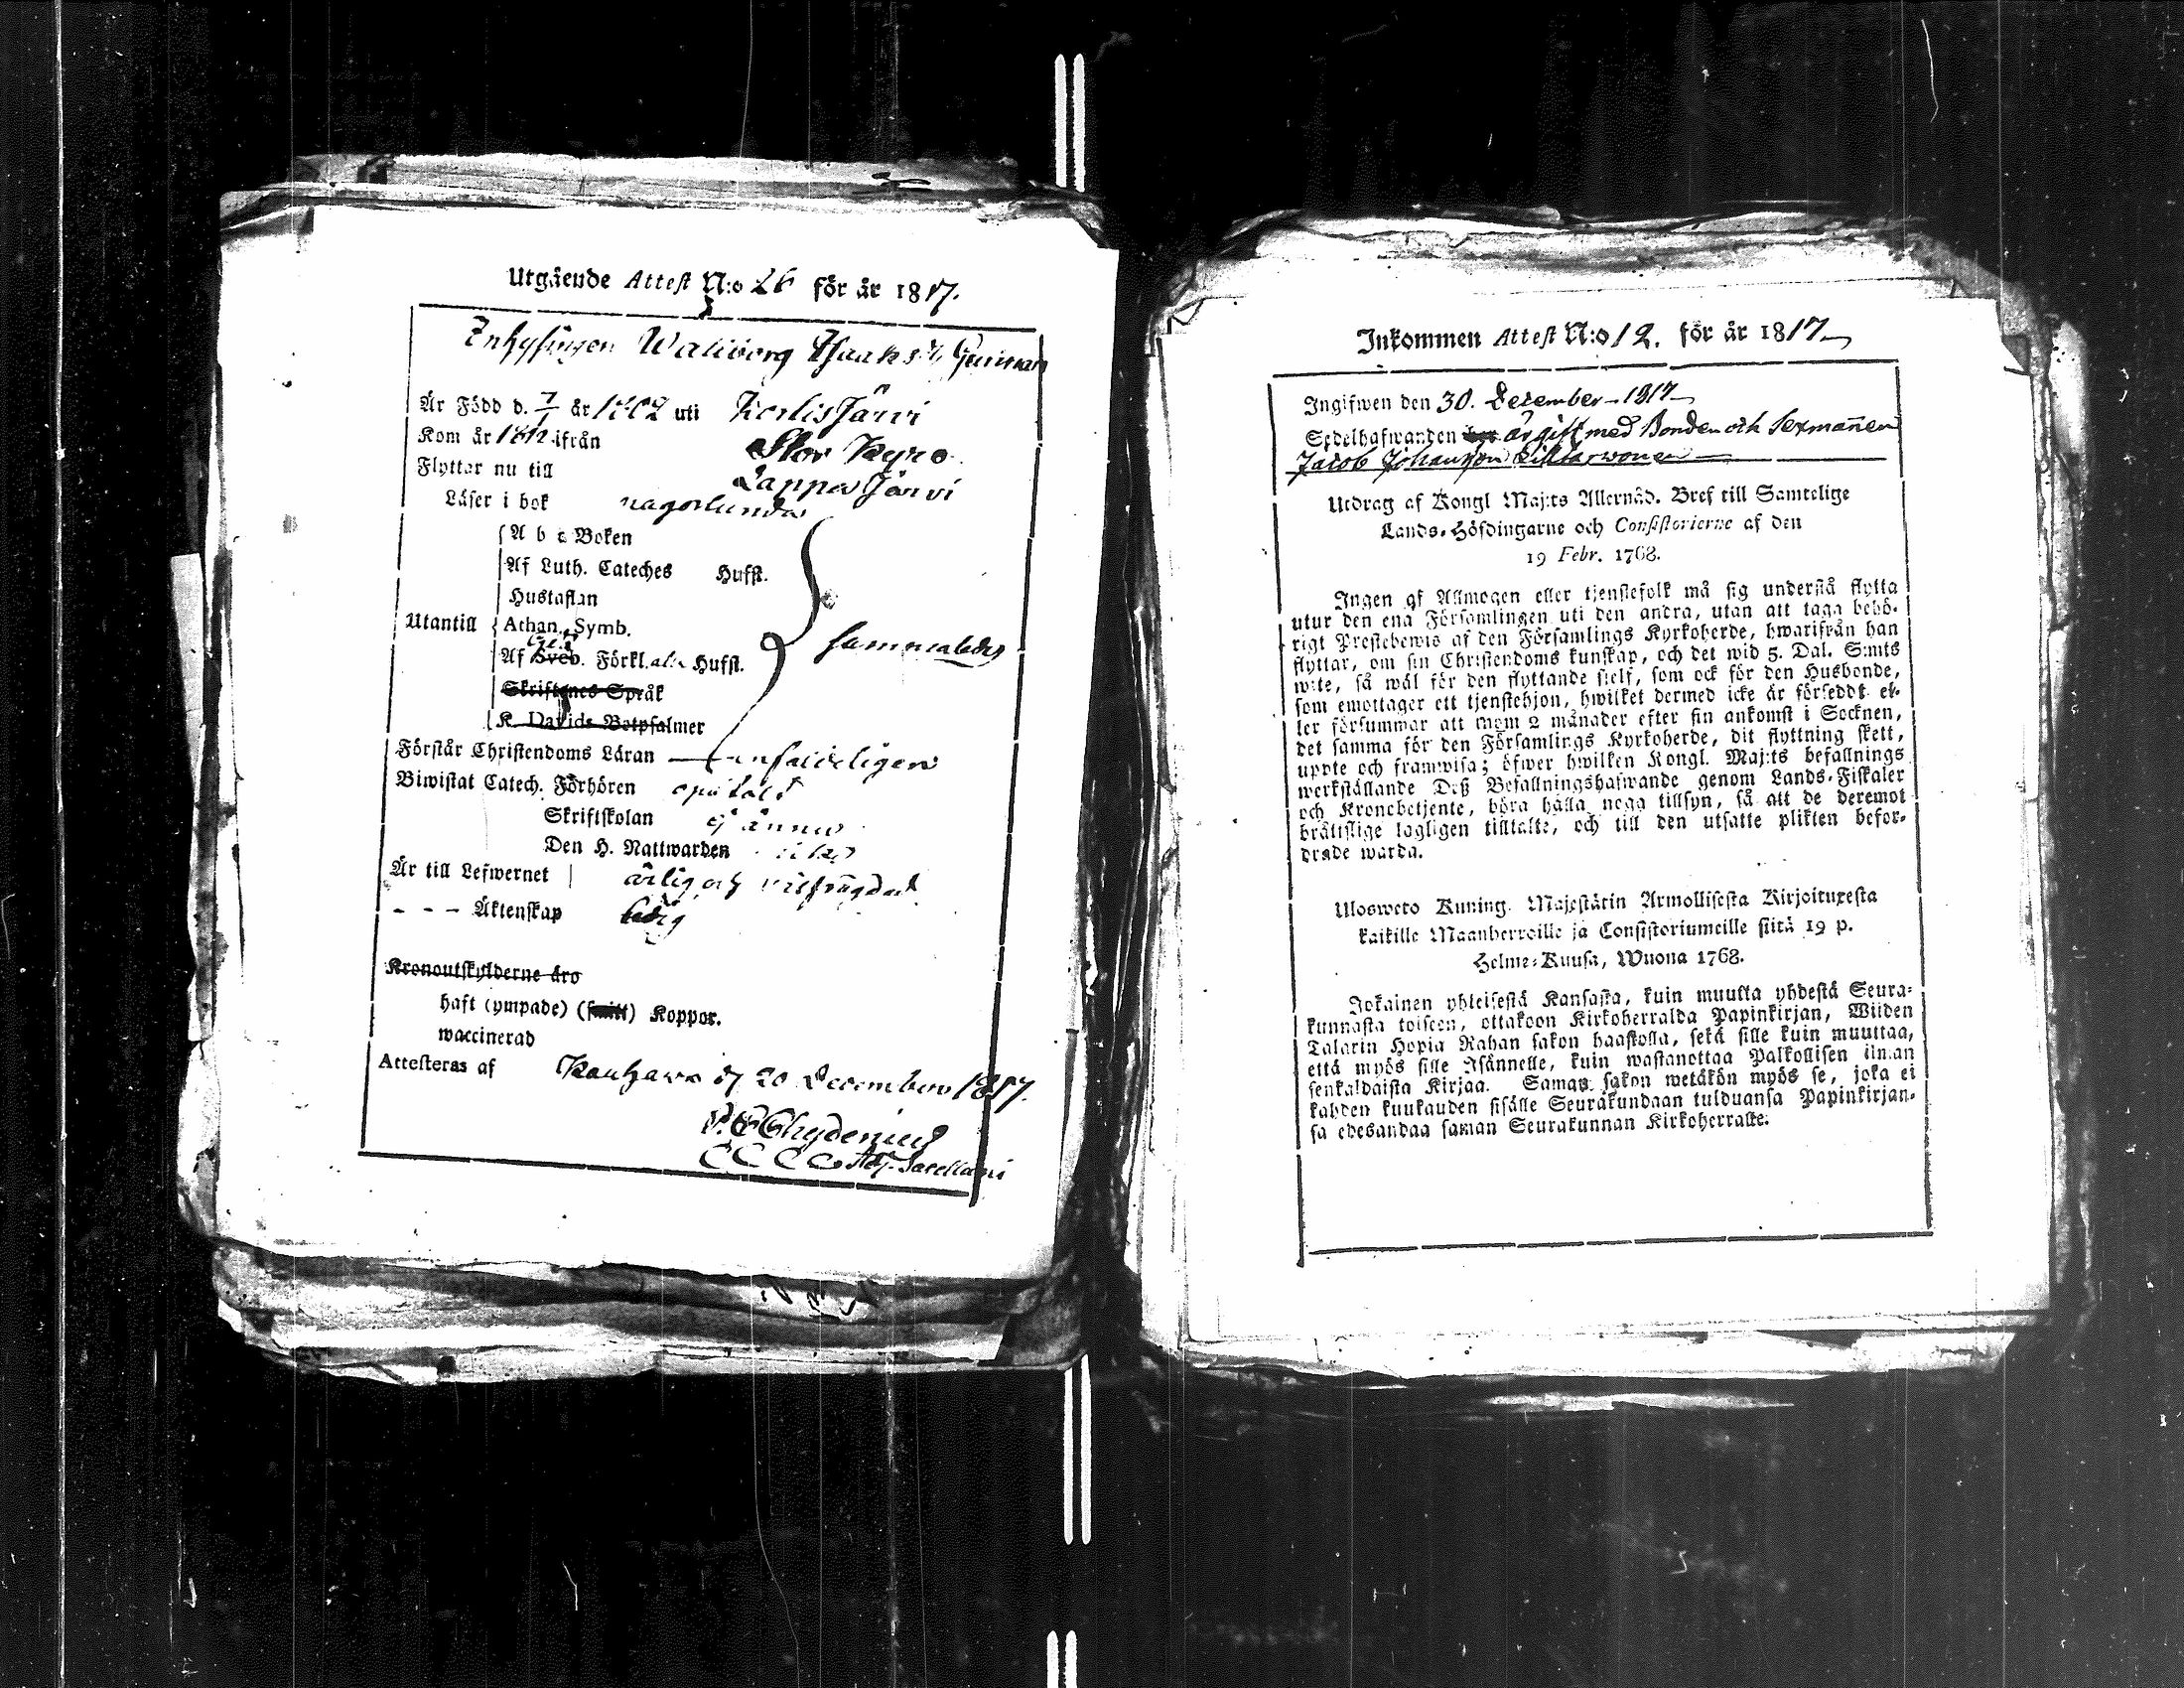 Utgående Attest N:o 26 för år 1817.
Inhysingen Walborg Isaks dr Gunnar
Är Född d. 7/1 år 1782 uti Kortisjärvi
Kom år 1812 ifrån Stor Kyro
Flyttar nu till Lappajärvi
Läser i bok någorlunda
A b c Boken
Af Luth. Cateches Hufst.
Hustaflan
Utantill Athan. Symb.
Af Sveb. Förkl. alla Hufst.
Skriftenes Språk
K. Davids Botpsalmer
sammaledes
Förstår Christendoms Läran enfaldeligen
Biwistat Catech. Förhören
Skriftskolan
Den H. Nattwarden
Är till Lefwernet ärlig och
- - - Äktenskap ledig
Kronoutskylderne äro
haft (ympade) Koppor.
waccinerad
Attesteras af Kauhava d 20 December 1817.
Chydenius
Adj. Sacellani
Inkommen Attest N:o 12. för år 1817
Ingifwen den 30. December 1817
Sedelhafwanden är gift med Bonden och Sexmannen
Jacob Johansson
Utdrag af Kongl Maj:ts Allernåd. Bref till Samtelige
Lands-Höfdingarne och Consistorierne af den
19 Febr. 1768.
Ingen af Allmogen eller tjenstefolk må sig understå flytta
utur den ena Församlingen uti den andra, utan att taga behö-
rigt Prestebewis af den Församlings Kyrkoherde, hwarifrån han
flyttar, om sin Christendoms kunskap, och det wid 5. Dal. S:mts
wite, så wäl för den flyttande sielf, som ock för den Husbonde,
som emottager ett tjenstehjon, hwilket dermed icke är förseddt el-
ler försummar att inom 2 månader efter sin ankomst i Socknen,
det samma för den Församlings Kyrkoherde, dit flyttning skett,
uppte och framwisa; öfwer hwilken Kongl. Maj:ts befallnings
werkställande Deß Befallningshafwande genom Lands-Fiskaler
och Kronobetjente, böra hålla noga tillsyn, så att de deremot
bråtislige lagligen tilltalte, och till den utsatte plikten befor-
drade warda.
Ulosweto Kuning. Majestätin Armollisesta Kirjoituxesta
kaikille Maanherroille ja Consistoriumeille siitä 19 p.
Helme-Kuusa, Wuona 1768.
Jokainen yhteisestä Kansasta, kuin muutta yhdestä Seura-
kunnasta toiseen, ottakoon Kirkoherralda Papinkirjan, Wiiden
Talarin Hopia Rahan sakon haastolla, sekä sille kuin muuttaa,
että myös sille Isännelle, kuin wastanottaa Palkollisen ilman
senkaldaista Kirjaa. Saman sakon wetäkön myös se, joka ei
kahden kuukauden sisälle Seurakundaan tulduansa Papinkirjan-
sa edesandaa saman Seurakunnan Kirkoherralle.